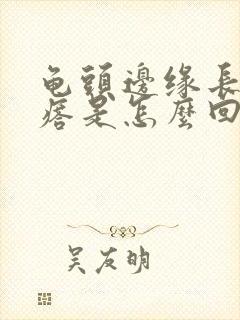 龟頭邊缘長
痞是怎麼回
吴友明